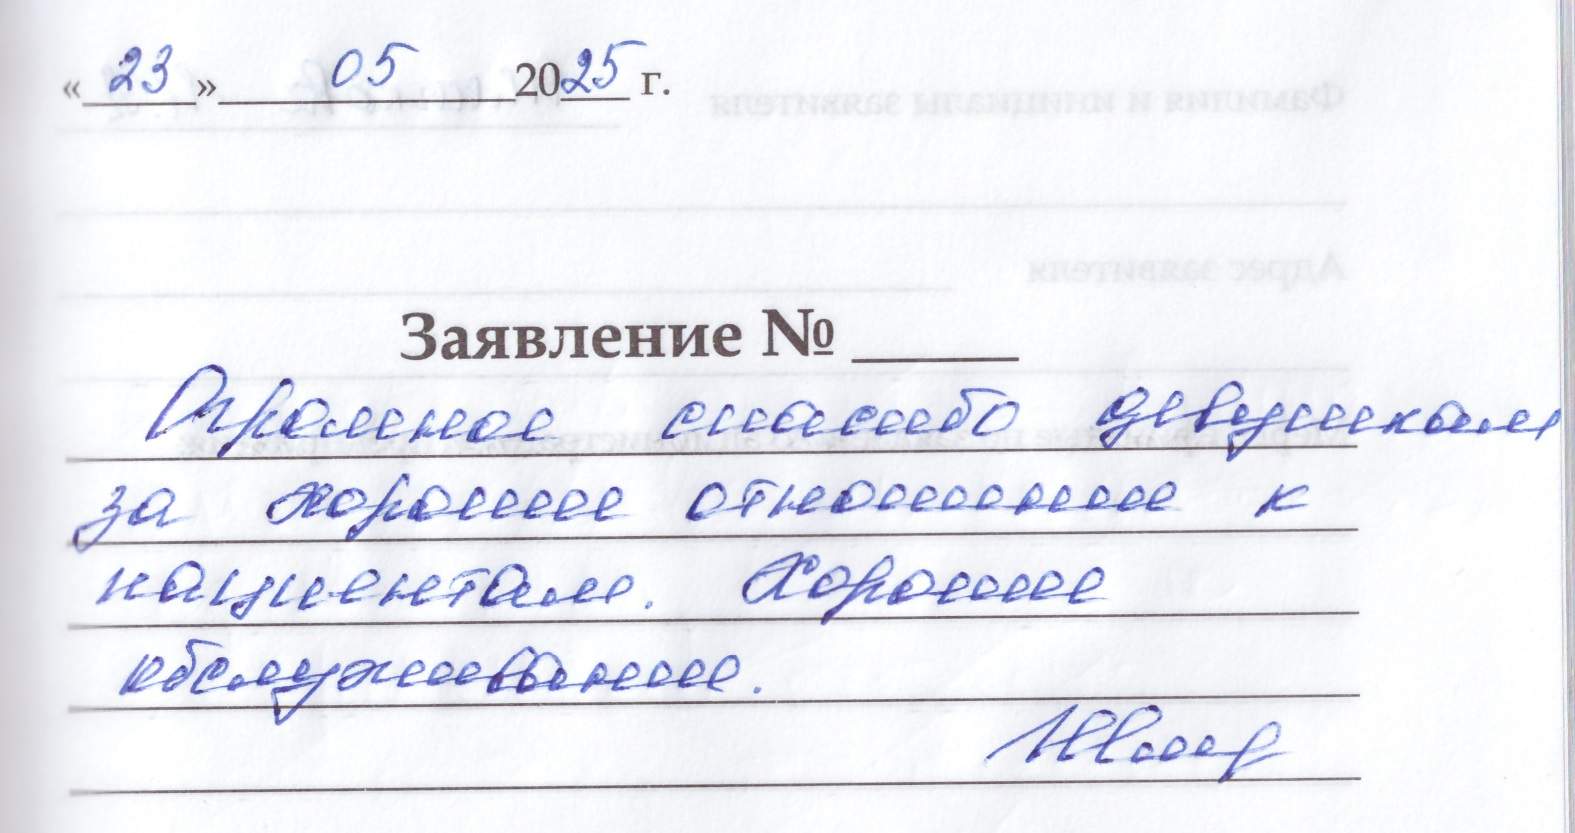 «23» 05 2025 г.
Заявление № _____
Огромное спасибо девушкам
за хорошее отношение к
пациентам. Хорошее
обслуживание.